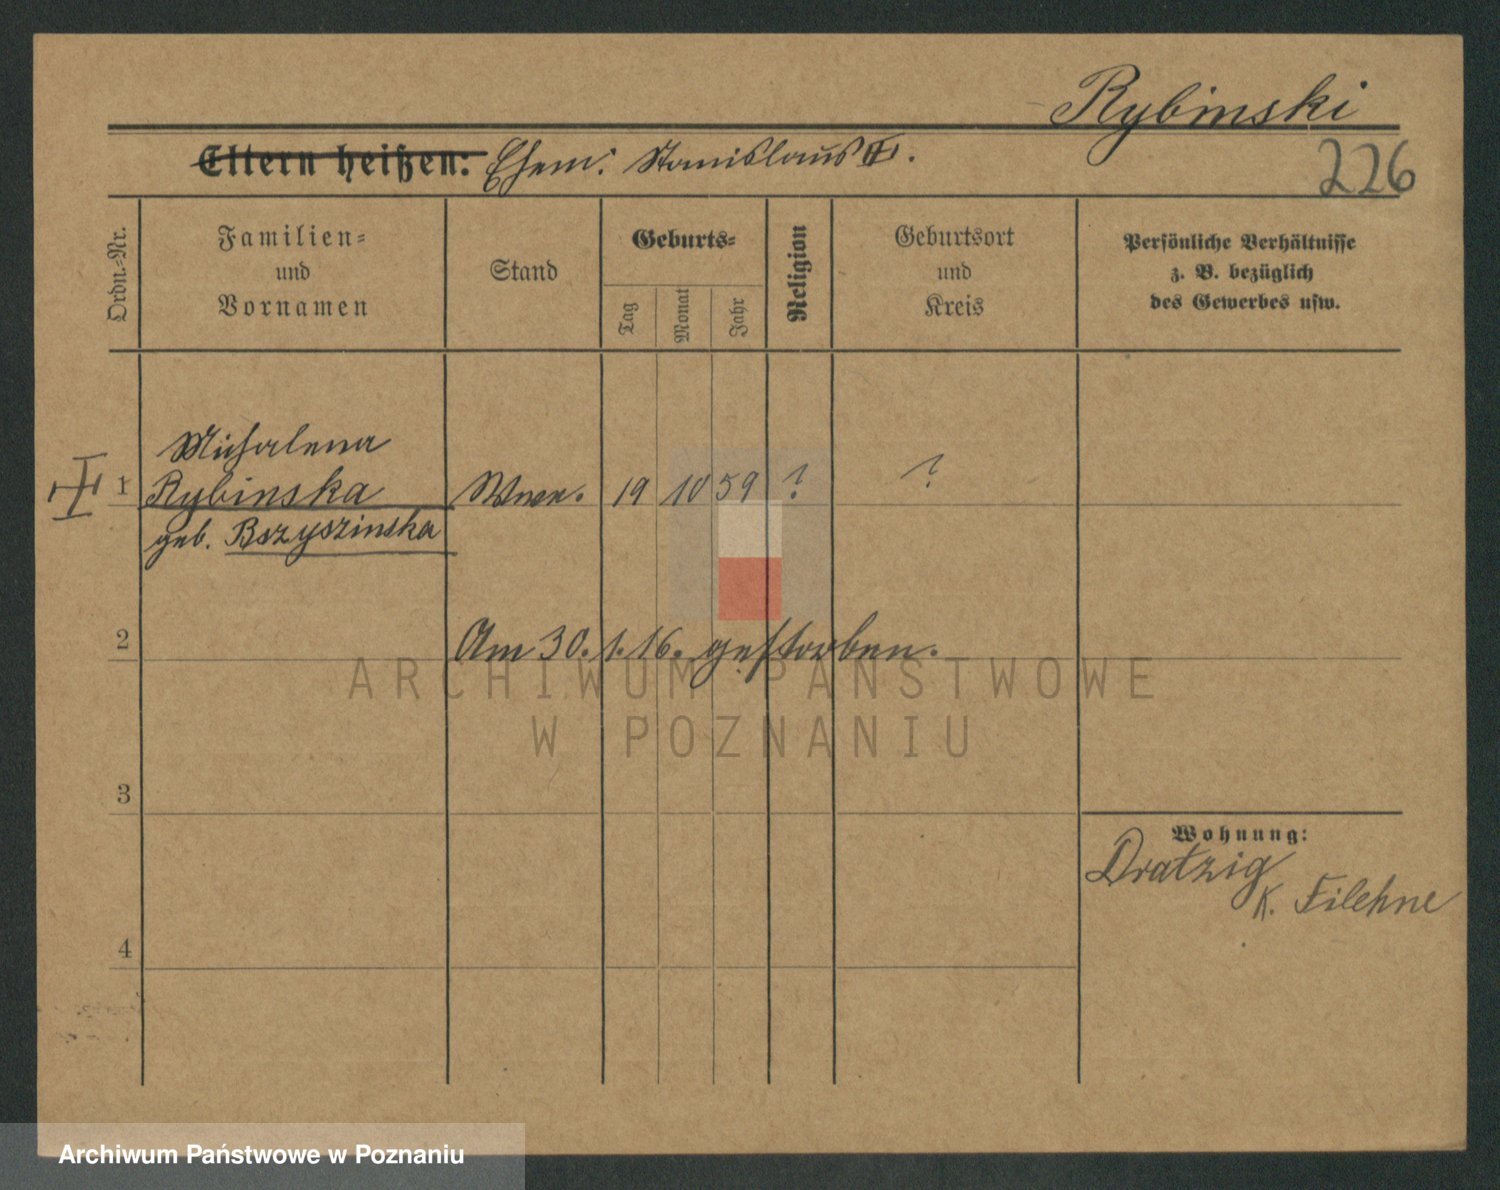 Rybinski
Eltern heißen: Ehem. Stanislaus
226
Ordn.-Nr.
Familien-
und
Vornamen
Stand
Geburts-
Tag
Monat
Jahr
Religion
Geburtsort
und
Kreis
Persönliche Verhältnisse
z. B. bezüglich
des Gewerbes usw.
Michalena
1 Rybinska Wwe. 19 10 59 ? ?
geb. Bszyszinska
2 Am 30.1.16. gestorben.
ARCHIWUM PAŃSTWOWE
W POZNANIU
3
Wohnung:
Dratzig
K. Filehne
4
Archiwum Państwowe w Poznaniu